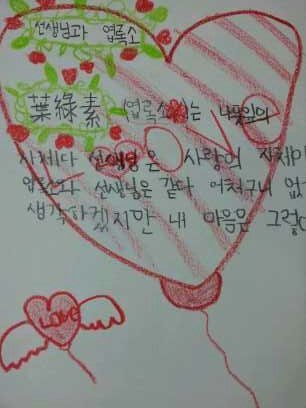 선생님과 엽록소
葉綠素 (엽록소)는 나뭇잎의
사체다 선생님은 사랑의 자체이
엽록소와 선생님은 같다 어처구니 없
생각하겠지만 내 마음은 그렇다
LOVE
LOVE